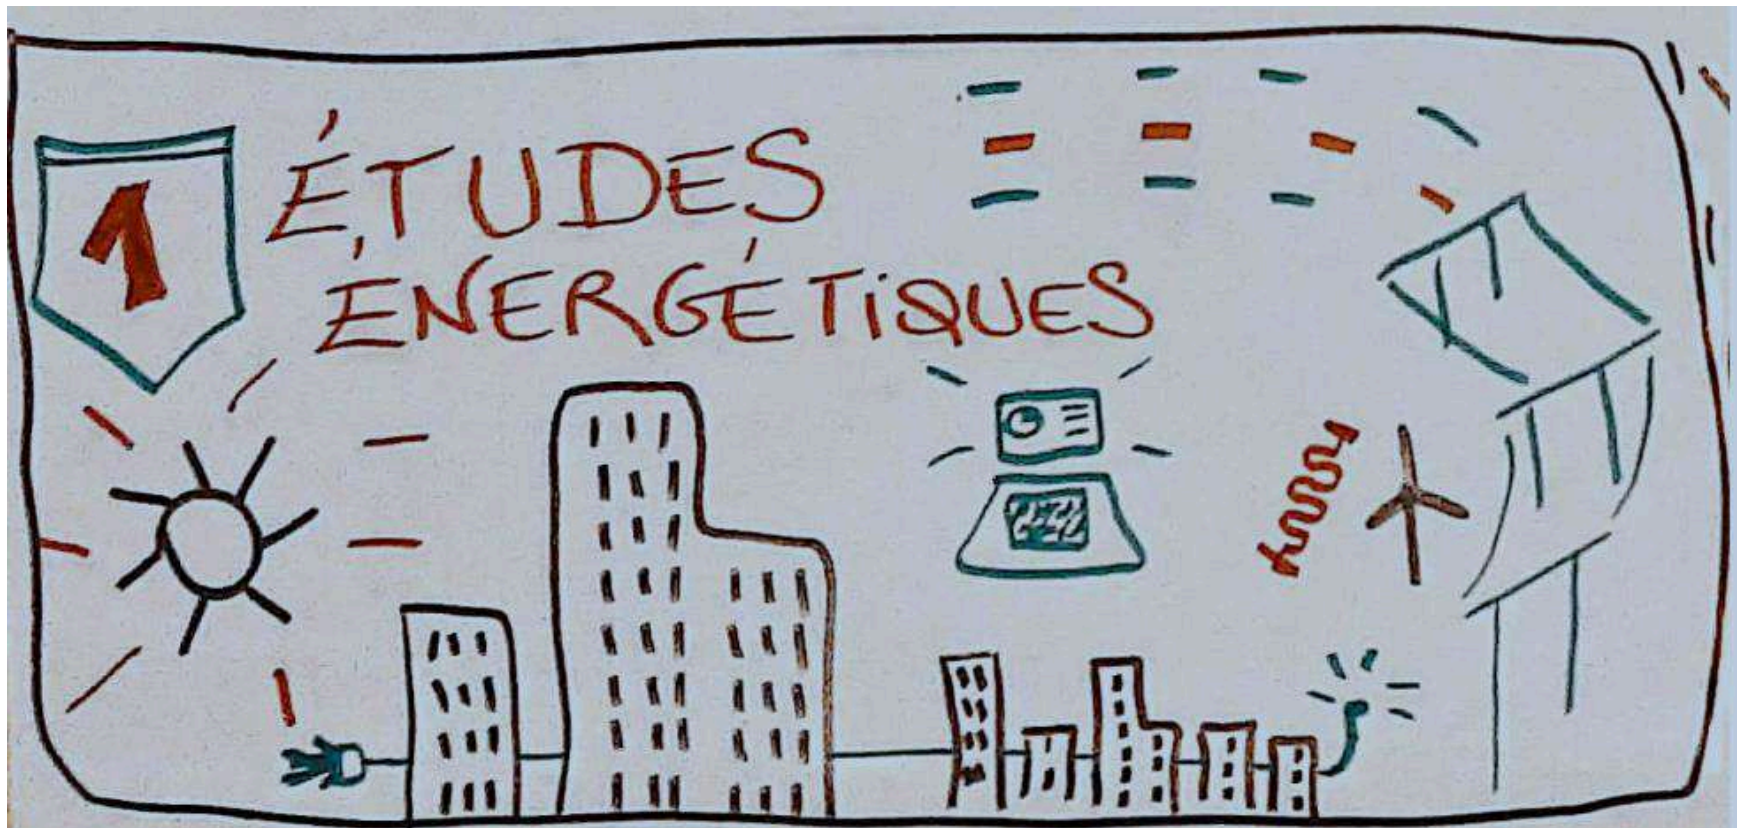 1
ÉTUDES
ÉNERGÉTIQUES